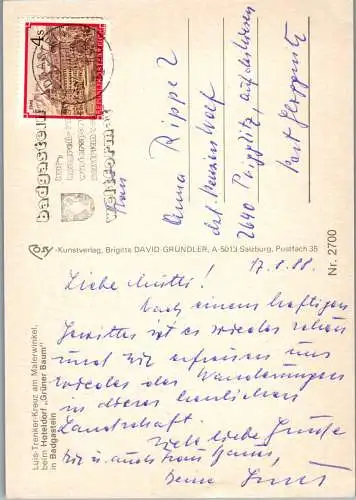 4 S
REPUBLIK ÖSTERREICH
badgastein
weltformat
Frau
Anna Rippel
2640
Cosy-Kunstverlag, Brigitte DAVID-GRÜNDLER, A-5013 Salzburg, Postfach 35
Nr. 2700
Luis-Trenker-Kreuz am Malerwinkel,
beim Hoteldorf „Grüner Baum"
in Badgastein
17.8.88.
Liebe Mutti!
Nach einem heftigen
Gewitter ist es wieder schön
und wir erfreuen uns
wieder des Wanderns
in dieser herrlichen
Landschaft.
Viele liebe Grüße
Dir u. auch Frau
Deine